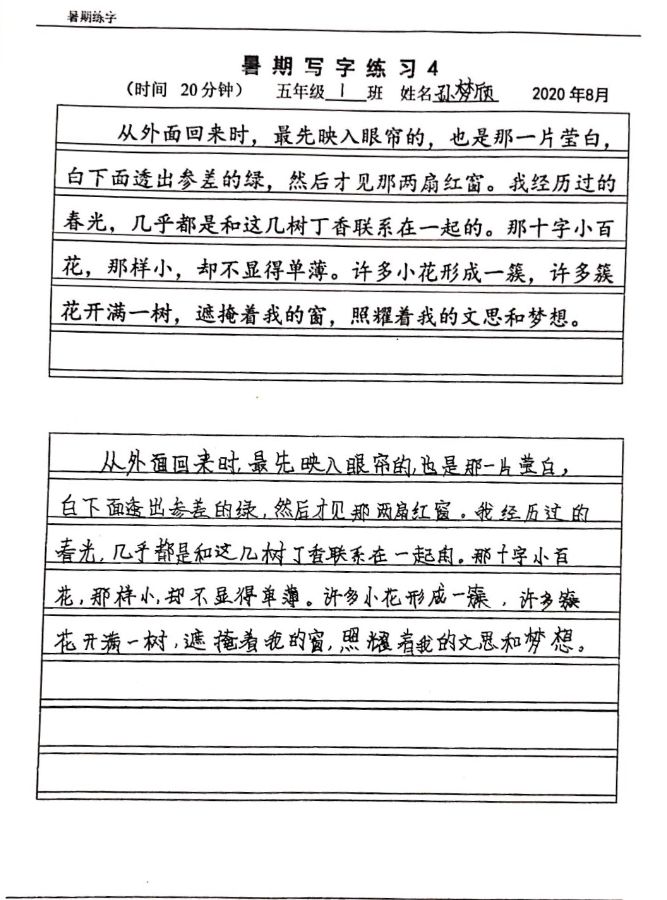 暑期练字
暑期写字练习4
（时间 20分钟） 五年级 1 班 姓名 孙梦颀 2020年8月
从外面回来时，最先映入眼帘的，也是那一片莹白，
白下面透出参差的绿，然后才见那两扇红窗。我经历过的
春光，几乎都是和这几树丁香联系在一起的。那十字小百
花，那样小，却不显得单薄。许多小花形成一簇，许多簇
花开满一树，遮掩着我的窗，照耀着我的文思和梦想。
从外面回来时,最先映入眼帘的,也是那一片莹白，
白下面透出参差的绿,然后才见那两扇红窗。我经历过的
春光,几乎都是和这几树丁香联系在一起的。那十字小百
花,那样小,却不显得单薄。许多小花形成一簇，许多簇
花开满一树,遮掩着我的窗,照耀着我的文思和梦想。